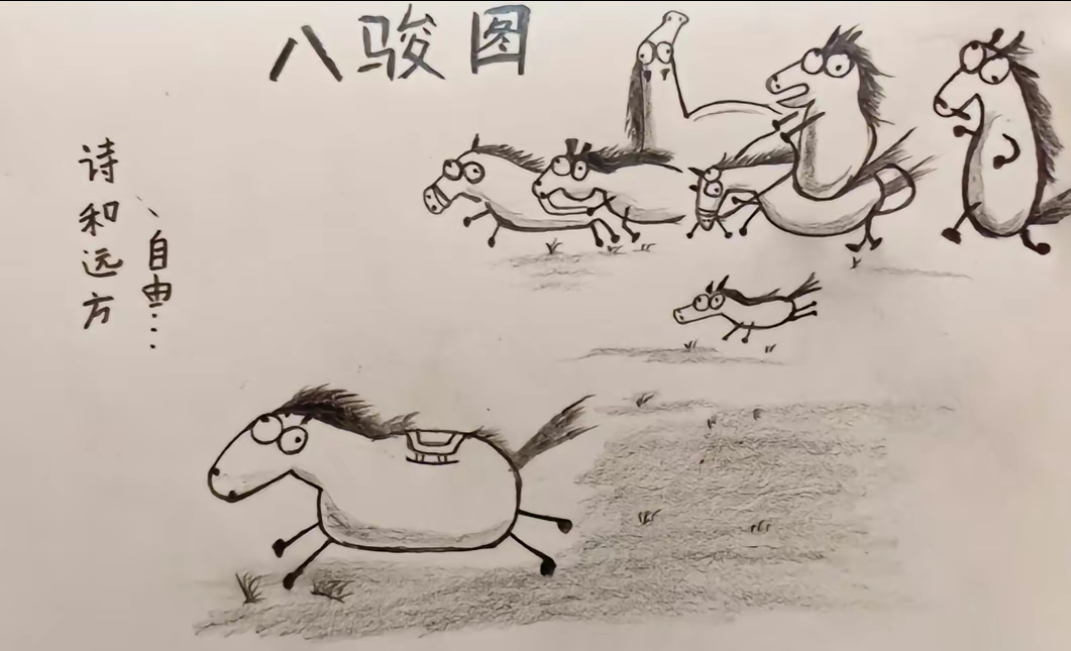 八骏图
诗和远方
、自由...